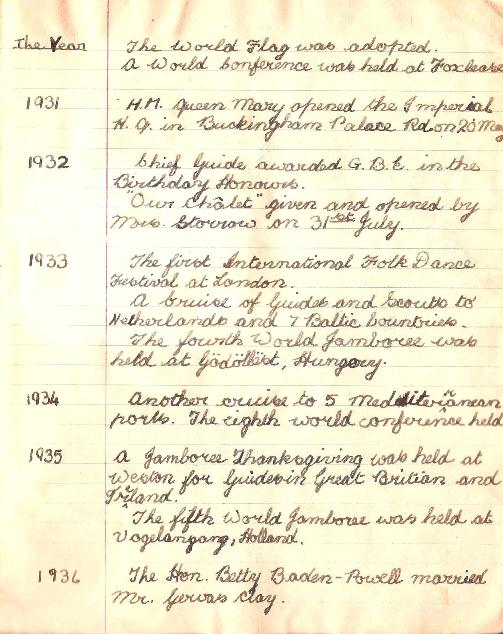 The Year The World Flag was adopted.
A World Conference was held at Foxlease
1931 H.M. Queen Mary opened the Imperial
H.Q. in Buckingham Palace Rd on 20 May
1932 Chief Guide awarded G.B.E. in the
Birthday Honours.
"Our Châlet" given and opened by
Mrs. Storrow on 31st July.
1933 The first International Folk Dance
Festival at London.
A Cruise of Guides and Scouts to
Netherlands and 7 Baltic Countries.
The fourth World Jamboree was
held at Gödöllöst, Hungory.
1934 Another cruise to 5 Mediteranean
ports. The eighth world conference held
1935 A Jamboree Thanksgiving was held at
Weston for Guides in Great Britian and
Ireland.
The fifth World Jamboree was held at
Vogelangang, Holland.
1936 The Hon. Betty Baden-Powell married
Mr. Gervas Clay.